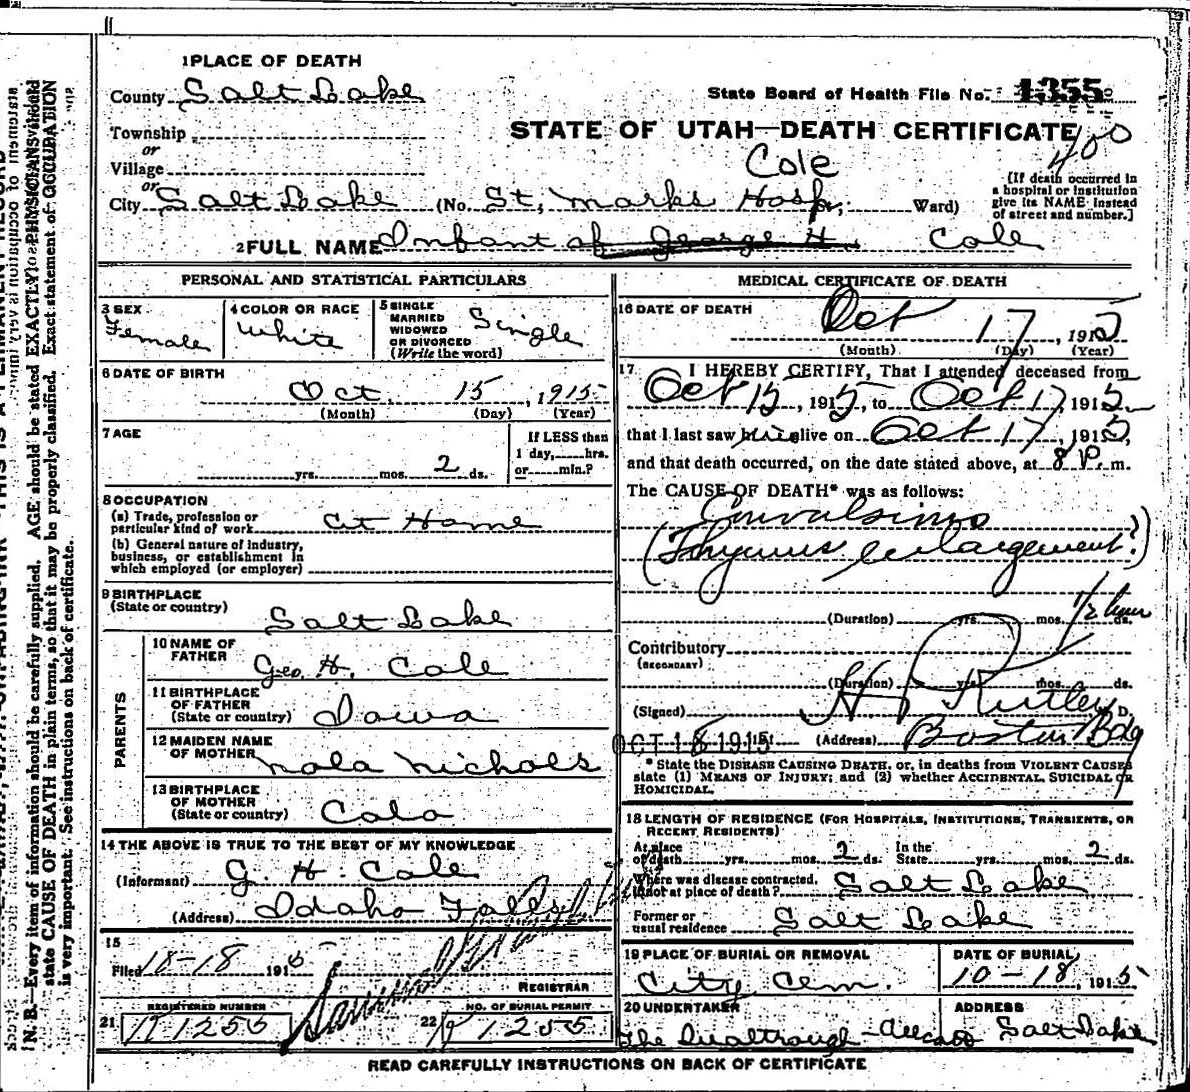 1 PLACE OF DEATH
County Salt Lake
State Board of Health File No. 1355
Township
or
STATE OF UTAH—DEATH CERTIFICATE
400
Village
or
Cole
City Salt Lake (No. St. Marks Hosp; Ward)
(If death occurred in
a hospital or institution
give its NAME instead
of street and number.]
2 FULL NAME Infant of George H. Cole
PERSONAL AND STATISTICAL PARTICULARS
3 SEX
Female
4 COLOR OR RACE
White
5 SINGLE
MARRIED
WIDOWED
OR DIVORCED
(Write the word)
Single
6 DATE OF BIRTH
Oct 15, 1915
(Month) (Day) (Year)
7 AGE
yrs. mos. 2 ds.
If LESS than
1 day, hrs.
or min.?
8 OCCUPATION
(a) Trade, profession or
particular kind of work At Home
(b) General nature of industry,
business, or establishment in
which employed (or employer)
9 BIRTHPLACE
(State or country)
Salt Lake
PARENTS
10 NAME OF
FATHER
Geo. H. Cole
11 BIRTHPLACE
OF FATHER
(State or country) Iowa
12 MAIDEN NAME
OF MOTHER Nola Nichols
13 BIRTHPLACE
OF MOTHER
(State or country) Colo
14 THE ABOVE IS TRUE TO THE BEST OF MY KNOWLEDGE
(Informant) G. H. Cole
(Address) Idaho Falls
15
Filed 18-18 1915
REGISTRAR
REGISTERED NUMBER
21 1255
NO. OF BURIAL PERMIT
22 1255
MEDICAL CERTIFICATE OF DEATH
16 DATE OF DEATH
Oct 17, 1915
(Month) (Day) (Year)
17 I HEREBY CERTIFY, That I attended deceased from
Oct 15, 1915, to Oct 17, 1915
that I last saw alive on Oct 17, 1915,
and that death occurred, on the date stated above, at 8 P. m.
The CAUSE OF DEATH* was as follows:
Convulsions
(Thymus enlargement?)
(Duration) yrs. mos. ds. 1/2 hour
Contributory
(SECONDARY)
(Duration) yrs. mos. ds.
(Signed) H P Kirtley M. D.
OCT 18 1915 (Address) Boston Bdg
* State the DISEASE CAUSING DEATH, or, in deaths from VIOLENT CAUSES
state (1) MEANS OF INJURY; and (2) whether ACCIDENTAL, SUICIDAL OR
HOMICIDAL.
18 LENGTH OF RESIDENCE (FOR HOSPITALS, INSTITUTIONS, TRANSIENTS, OR
RECENT RESIDENTS)
At place
of death yrs. mos. 2 ds.
In the
State yrs. mos. 2 ds.
Where was disease contracted,
if not at place of death? Salt Lake
Former or
usual residence Salt Lake
19 PLACE OF BURIAL OR REMOVAL
City Cem.
DATE OF BURIAL
10-18, 1915
20 UNDERTAKER
The
ADDRESS
Salt Lake
READ CAREFULLY INSTRUCTIONS ON BACK OF CERTIFICATE
N. B.—Every item of information should be carefully supplied. AGE should be stated EXACTLY. PHYSICIANS should
state CAUSE OF DEATH in plain terms, so that it may be properly classified. Exact statement of OCCUPATION
is very important. See instructions on back of certificate.